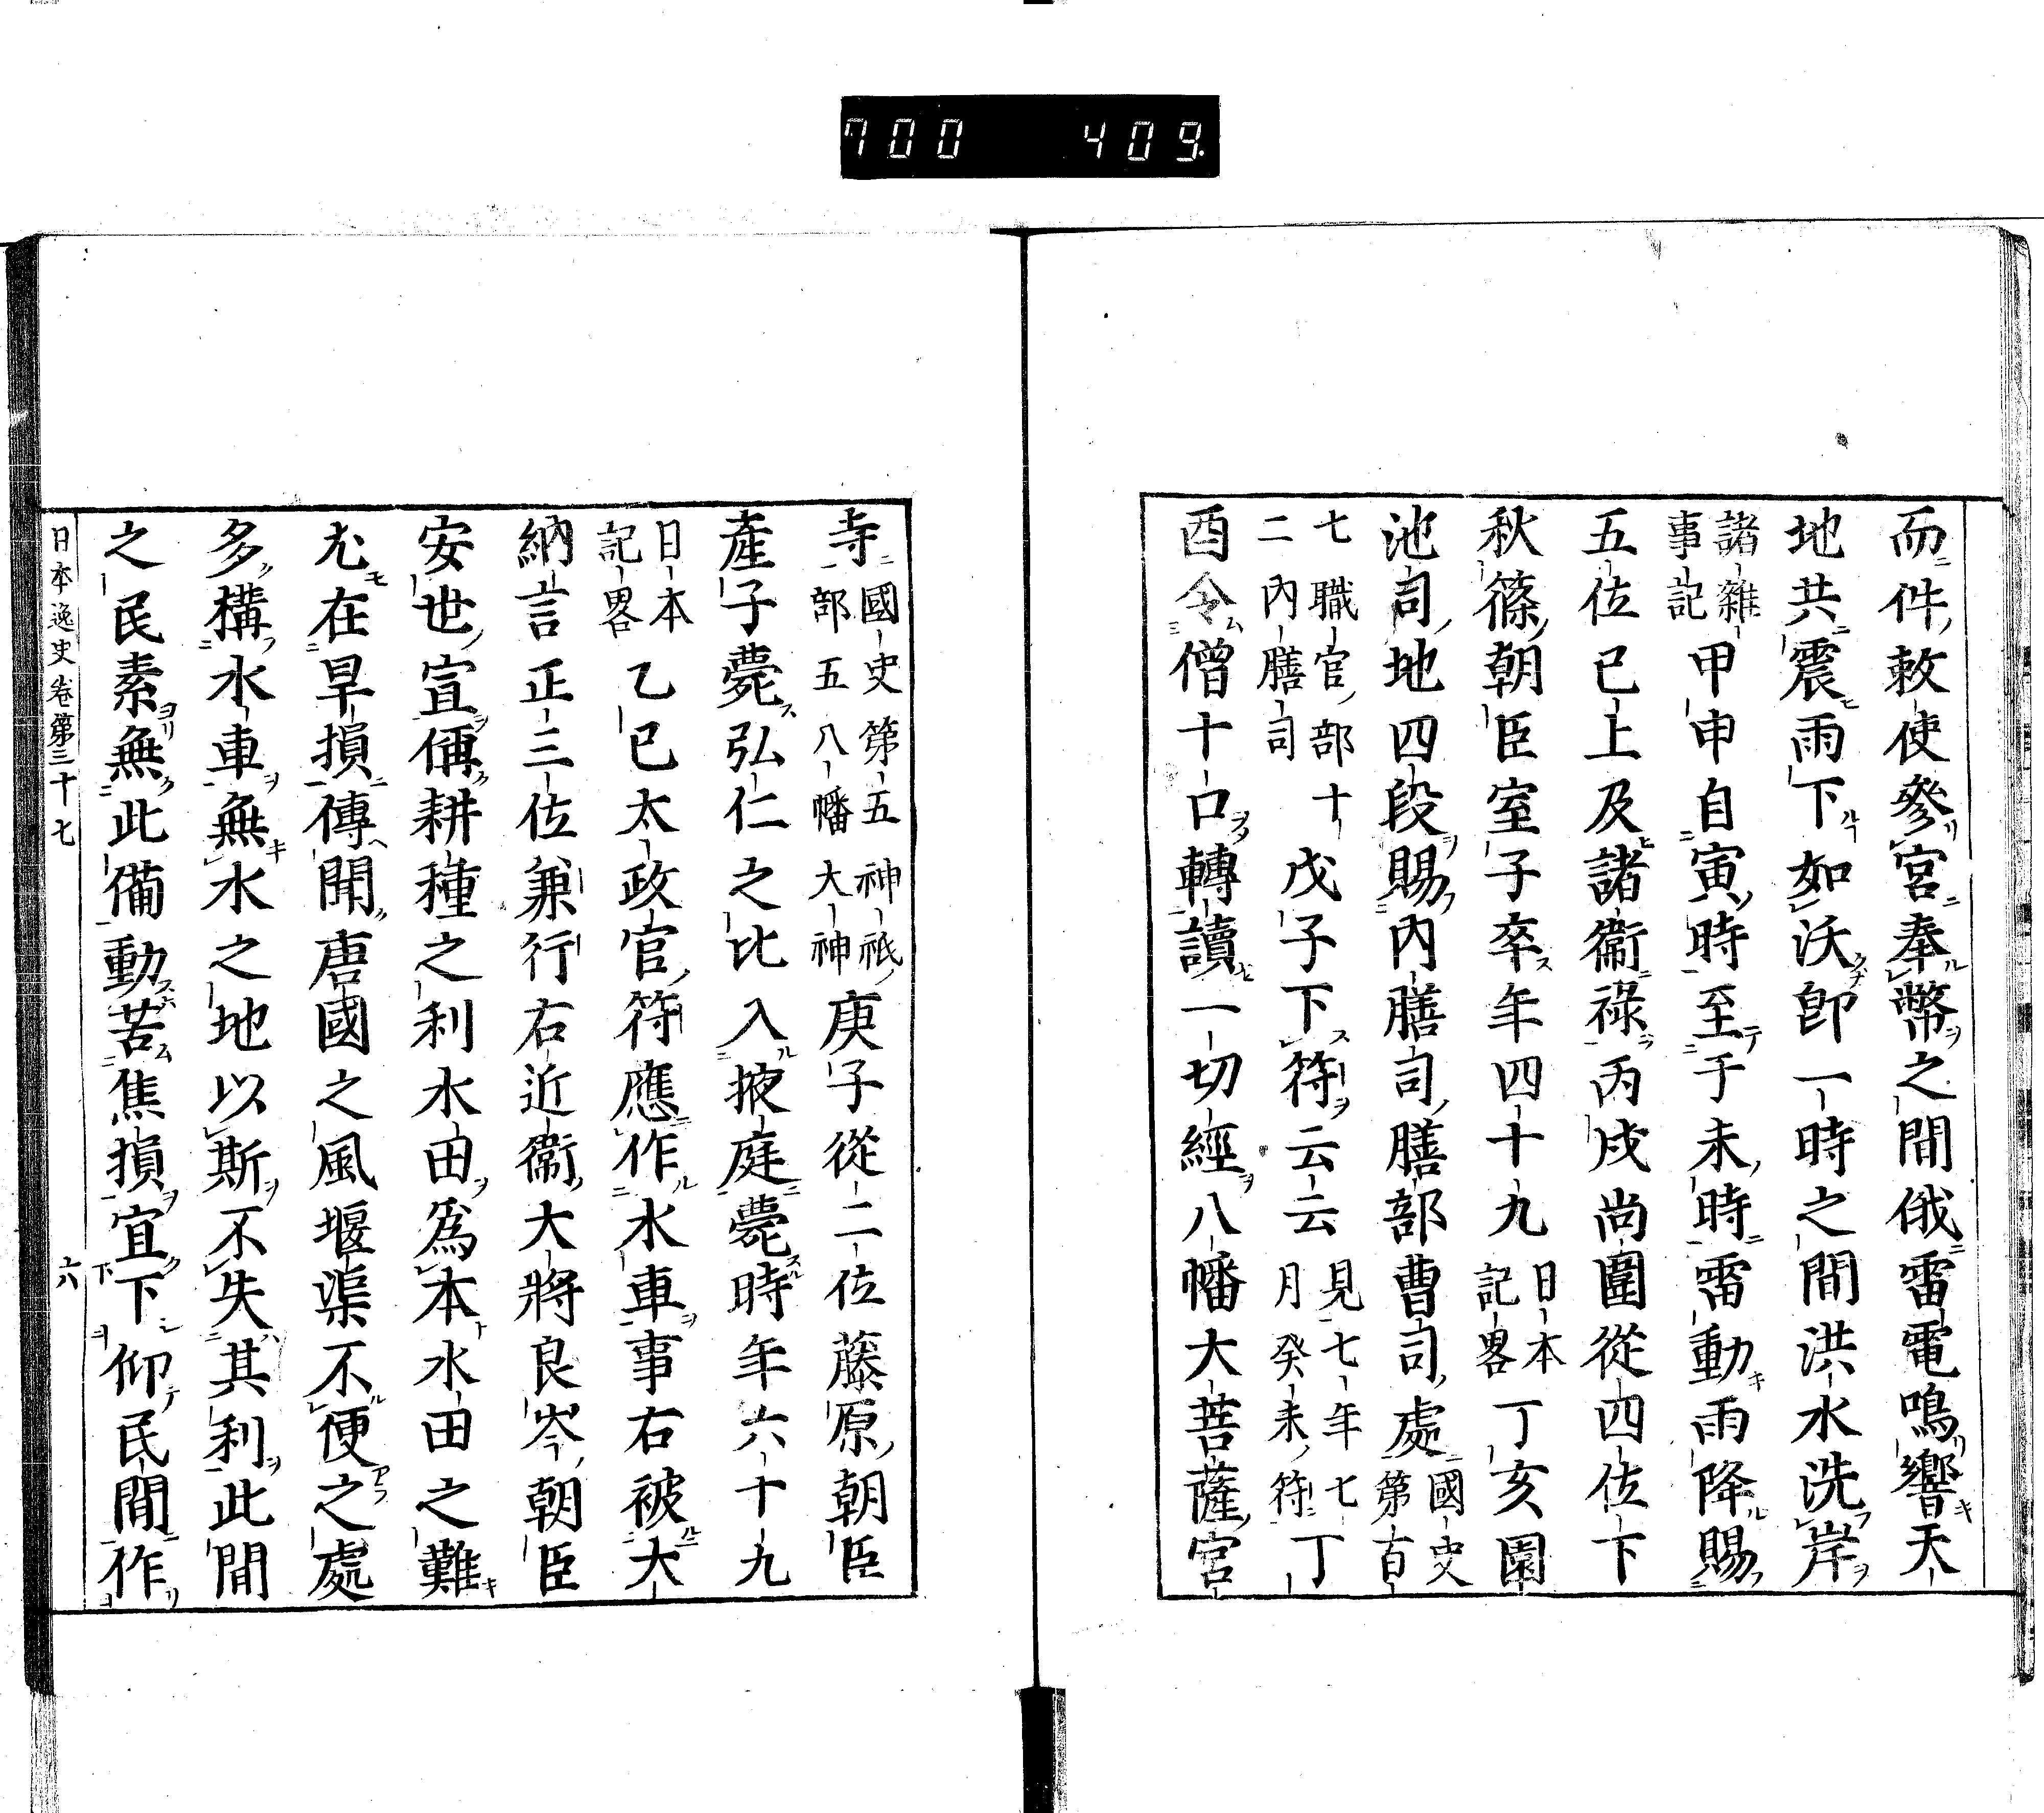 700 409
而件敕使參宮奉幣之間俄雷電鳴響天
地共震雨下如沃卽一時之間洪水洗岸
諸雜事記甲申自寅時至于未時雷動雨降賜
五位已上及諸衞祿丙戌尚圍從四位下
秋篠朝臣室子卒年四十九日本記畧丁亥園
池司地四段賜內膳司膳部曹司處國史第百
七職官部十二內膳司戊子下符云云見七年七月癸未符丁
酉令僧十口轉讀一切經八幡大菩薩宮
寺國史第五神祇部五八幡大神庚子從二位藤原朝臣
產子薨弘仁之比入掖庭薨時年六十九
日本記畧乙巳太政官符應作水車事右被大
納言正三位兼行右近衞大將良岑朝臣
安世宣偁耕種之利水田爲本水田之難
尤在旱損傳聞唐國之風堰渠不便之處
多構水車無水之地以斯不失其利此間
之民素無此備動苦焦損宜下仰民間作
日本逸史卷第三十七 六